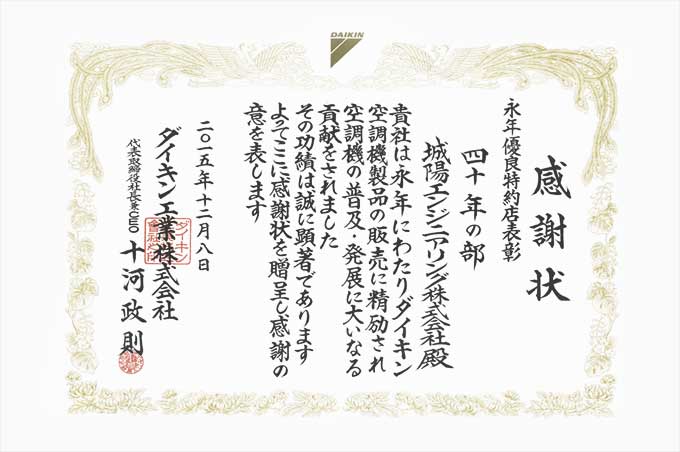 DAIKIN
感謝状
永年優良特約店表彰
四十年の部
城陽エンジニアリング株式会社殿
貴社は永年にわたりダイキン
空調機製品の販売に精励され
空調機の普及・発展に大いなる
貢献をされました
その功績は誠に顕著であります
よってここに感謝状を贈呈し感謝の
意を表します
二〇一五年十二月八日
ダイキン工業株式会社
代表取締役社長兼CEO 十河政則